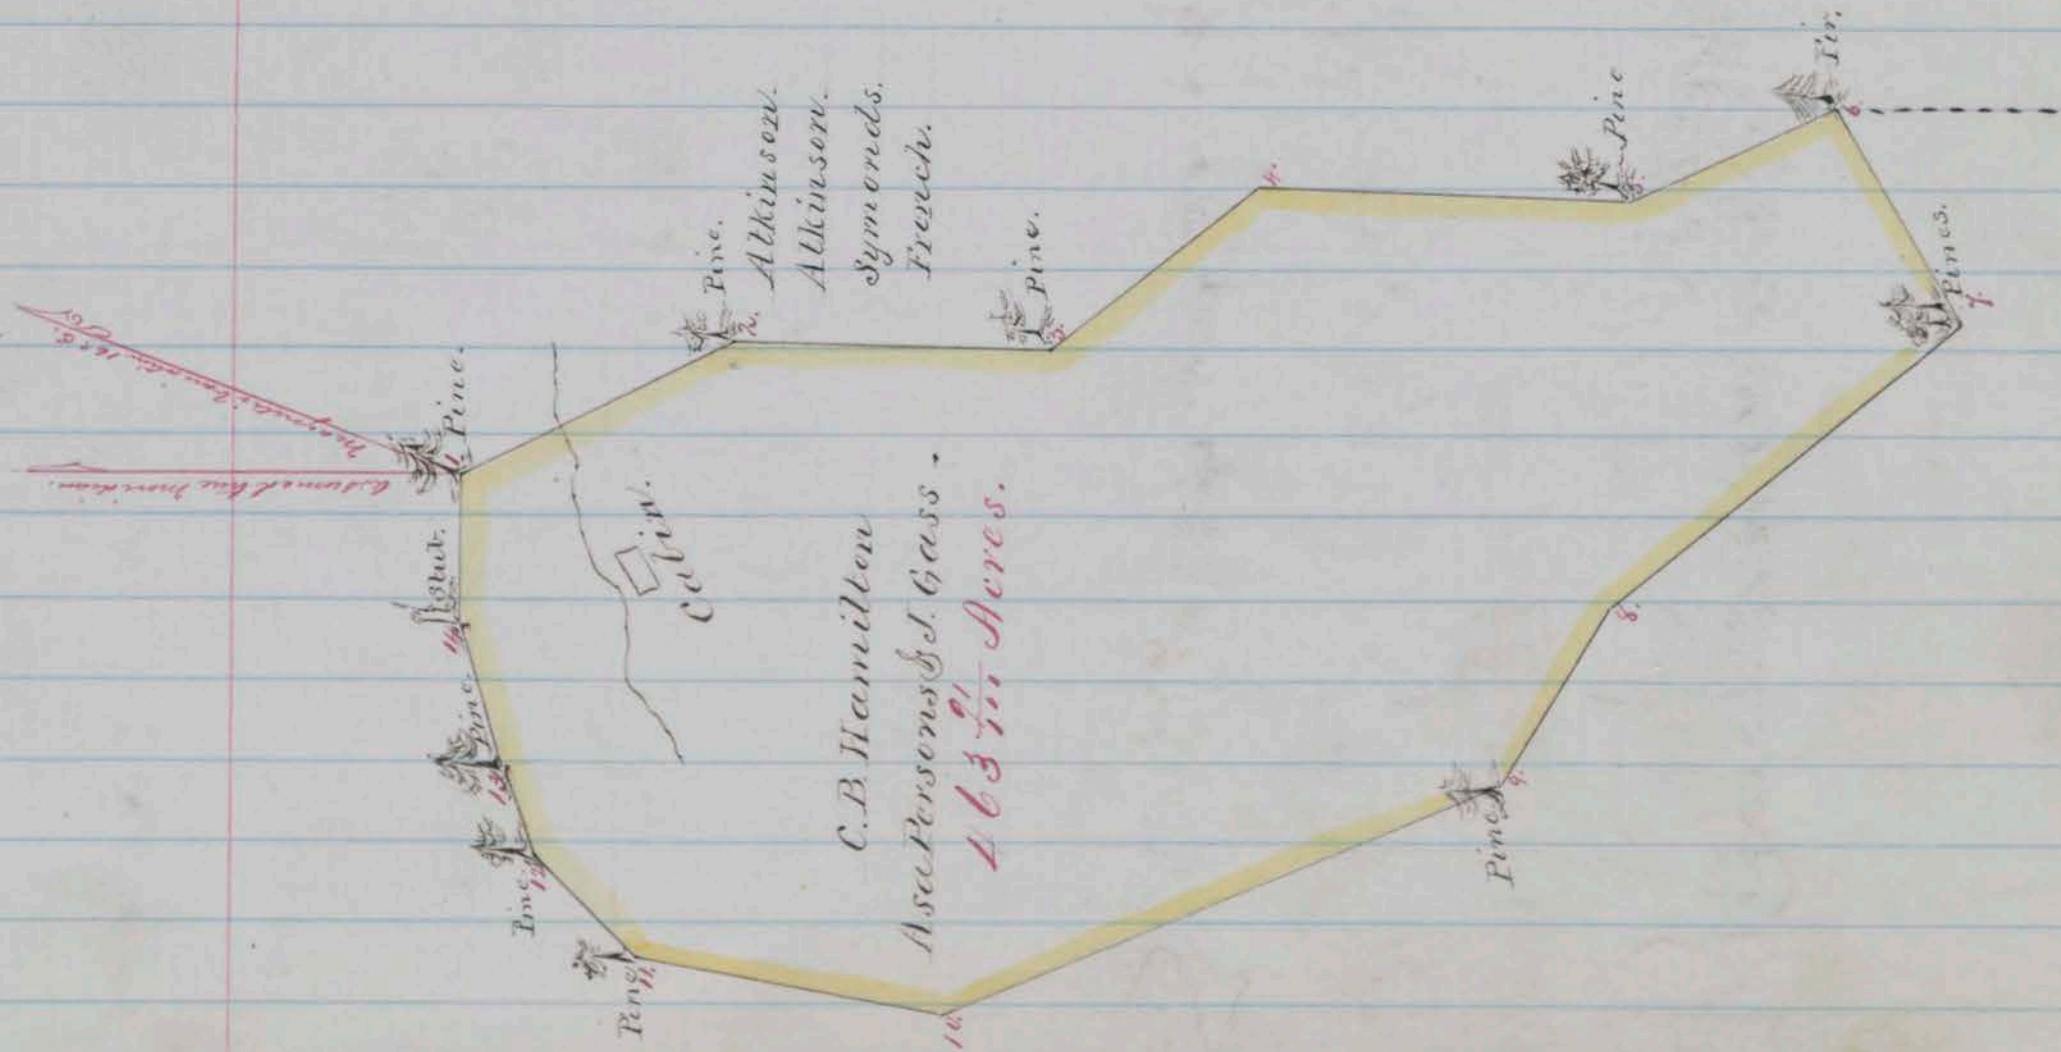 Magnetic Variation
Assumed true Meridian.
Pine.
1.
Pine.
2.
Atkinson.
Atkinson.
Symonds.
French.
Pine.
3.
4.
Pine
5.
Fir.
6.
Pines.
7.
8.
Pine
9.
10.
Pine
11.
Pine
12.
Pine.
13.
14.
Cabin.
C.B. Hamilton
Asa Persons & J. Gass.
463 91/100 Acres.